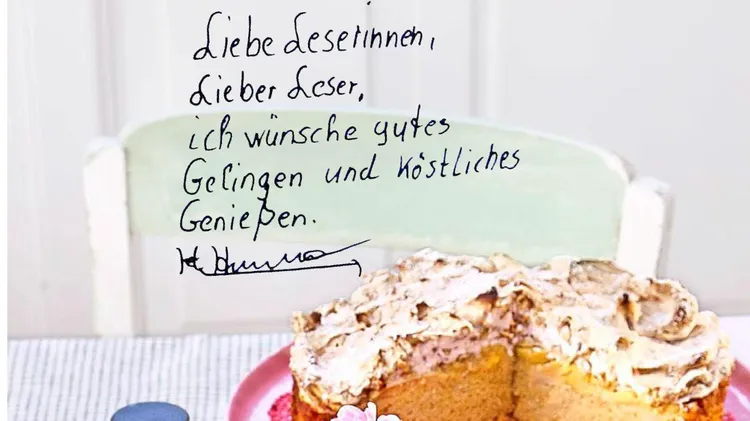 Liebe Leserinnen,
Lieber Leser,
ich wünsche gutes
Gelingen und köstliches
Genießen.